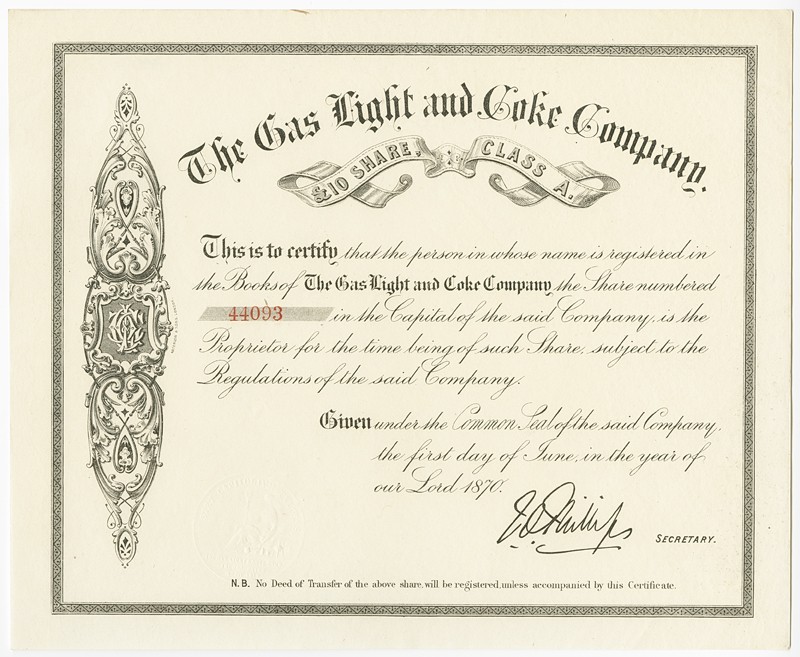 The Gas Light and Coke Company.
£10 SHARE, CLASS A.
This is to certify that the person in whose name is registered in
the Books of The Gas Light and Coke Company, the Share numbered
44093 in the Capital of the said Company, is the
Proprietor for the time being of such Share, subject to the
Regulations of the said Company.
Given under the Common Seal of the said Company,
the first day of June, in the year of
our Lord 1870.
Phillips
SECRETARY.
N.B. No Deed of Transfer of the above share, will be registered, unless accompanied by this Certificate.